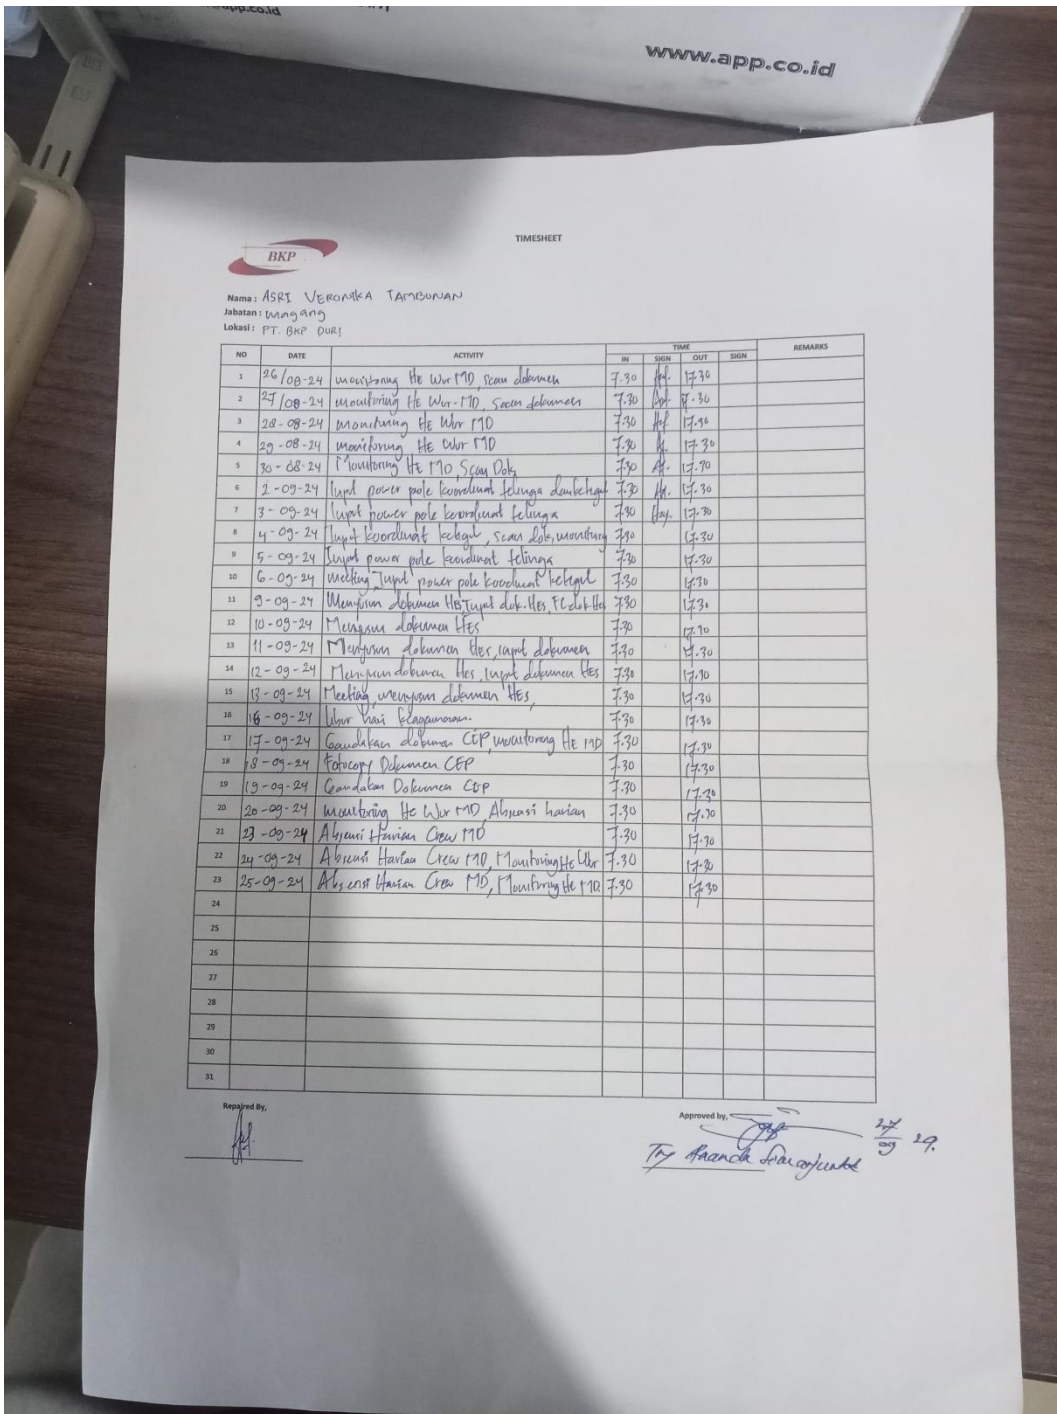 www.app.co.id
TIMESHEET
BKP
Nama : ASRI VERONIKA TAMBUNAN
Jabatan : Magang
Lokasi : PT. BKP DURI
NO DATE ACTIVITY TIME REMARKS
IN SIGN OUT SIGN
1 26/08-24 monitoring HE Wvr MD, scan dokumen 7.30 17.30
2 27/08-24 monitoring HE Wvr-MD, scan dokumen 7.30 17.30
3 28-08-24 monitoring HE Wvr MD 7.30 17.30
4 29-08-24 monitoring HE Wvr MD 7.30 17.30
5 30-08-24 Monitoring HE MD, Scan Dok, 7.30 17.30
6 2-09-24 Input power pole koordinat telinga dan 7.30 17.30
7 3-09-24 Input power pole koordinat telinga 7.30 17.30
8 4-09-24 Input koordinat ketigul, scan dok, monitoring 7.30 17.30
9 5-09-24 Input power pole koordinat telinga 7.30 17.30
10 6-09-24 meeting, Input power pole koordinat ketigul 7.30 17.30
11 9-09-24 Menyusun dokumen HES, Input dok. Hes, FC dok Hes 7.30 17.30
12 10-09-24 Menyusun dokumen HES 7.30 17.30
13 11-09-24 Menyusun dokumen Hes, input dokumen 7.30 17.30
14 12-09-24 Menyusun dokumen Hes, input dokumen HES 7.30 17.30
15 13-09-24 Meeting, menyusun dokumen HES, 7.30 17.30
16 16-09-24 libur hari keagamaan. 7.30 17.30
17 17-09-24 Gandakan dokumen CEP, monitoring HE MD 7.30 17.30
18 18-09-24 Fotocopy Dokumen CEP 7.30 17.30
19 19-09-24 Gandakan Dokumen CEP 7.30 17.30
20 20-09-24 monitoring HE Wvr MD, Absensi harian 7.30 17.30
21 23-09-24 Absensi Harian Crew MD 7.30 17.30
22 24-09-24 Absensi Harian Crew MD, Monitoring He Wvr 7.30 17.30
23 25-09-24 Absensi Harian Crew MD, Monitoring HE MD. 7.30 17.30
24
25
26
27
28
29
30
31
Repaired By, Approved by,
27/09 24.
Try Ananda Simanjuntak